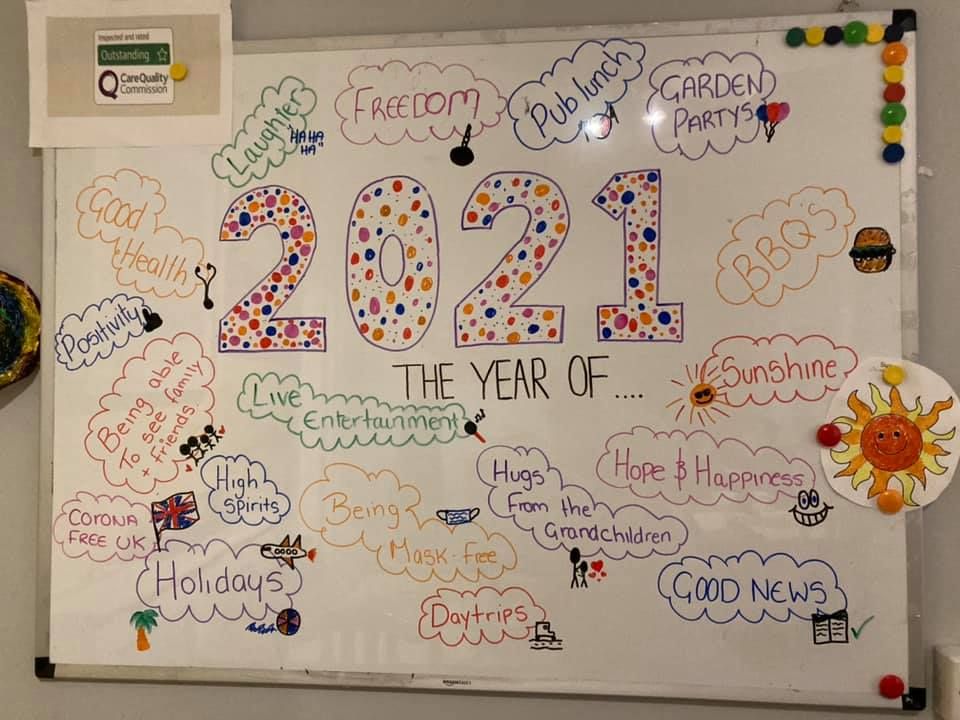 Inspected and rated
Outstanding
CareQuality
Commission
Laughter
HA HA
HA"
FREEDOM
Pub lunch
GARDEN
PARTYS
Good
Health
2021
BBQS
Positivity
THE YEAR OF ....
Sunshine
Being able
To see family
+ friends.
Live
Entertainment
High
Spirits
Hugs
From the
Grandchildren
Hope & Happiness
CORONA
FREE UK
Being
Mask-Free
Holidays
Daytrips
GOOD NEWS
amazonbasics